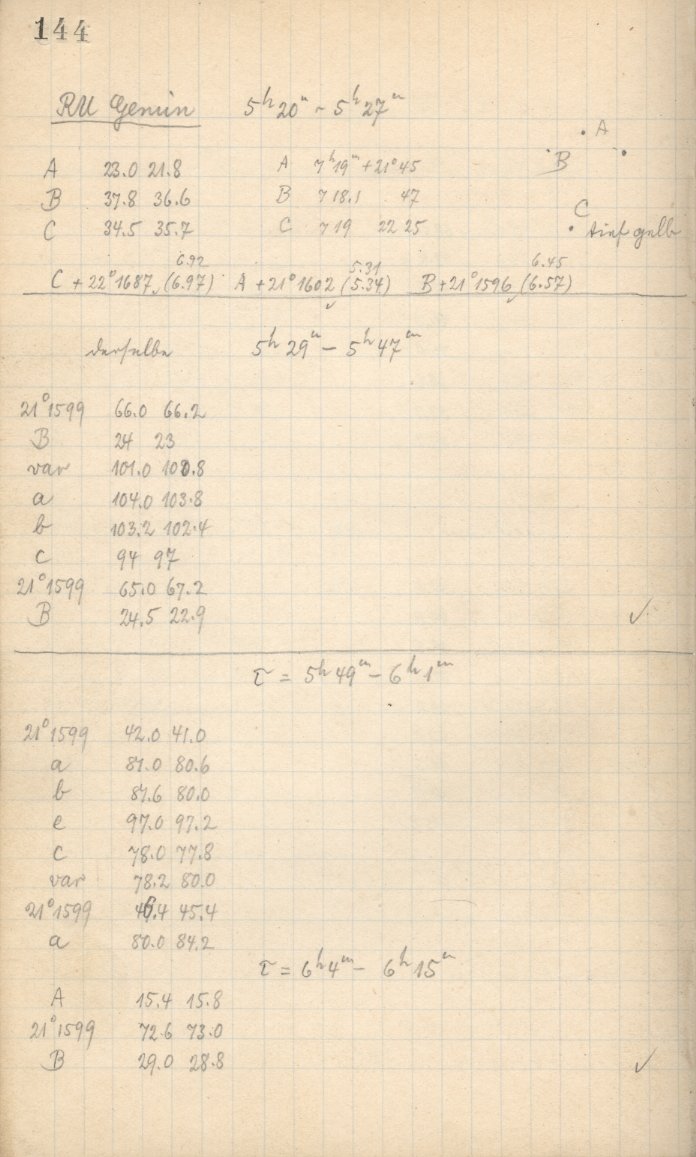 144
RU Gemin 5h20m – 5h27m
A
B
C
tief gelb
A 23.0 21.8 A 7h19m +21°45
B 37.8 36.6 B 7 18.1 47
C 34.5 35.7 C 7 19 22 25
6.92 5.31 6.45
C +22°1687 (6.97) A +21°1602 (5.34) B +21°1596 (6.57)
✓ ✓ ✓
derselbe 5h29m – 5h47m
21°1599 66.0 66.2
B 24 23
var 101.0 100.8
a 104.0 103.8
b 103.2 102.4
c 94 97
21°1599 65.0 67.2
B 24.5 22.9 ✓
τ = 5h49m – 6h1m
21°1599 42.0 41.0
a 81.0 80.6
b 81.6 80.0
e 97.0 97.2
c 78.0 77.8
var 78.2 80.0
21°1599 46.4 45.4
a 80.0 84.2
τ = 6h4m – 6h15m
A 15.4 15.8
21°1599 72.6 73.0
B 29.0 28.8 ✓